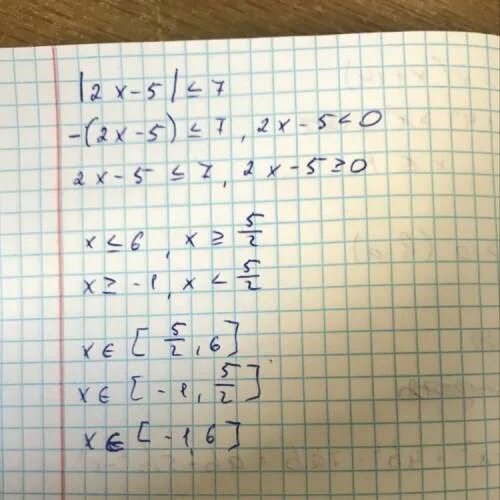 |2x-5| ≤ 7
-(2x-5) ≤ 7, 2x-5<0
2x-5 ≤ 7, 2x-5≥0
x ≤ 6, x ≥ 5/2
x ≥ -1, x < 5/2
x ∈ [5/2, 6]
x ∈ [-1, 5/2]
x ∈ [-1, 6]